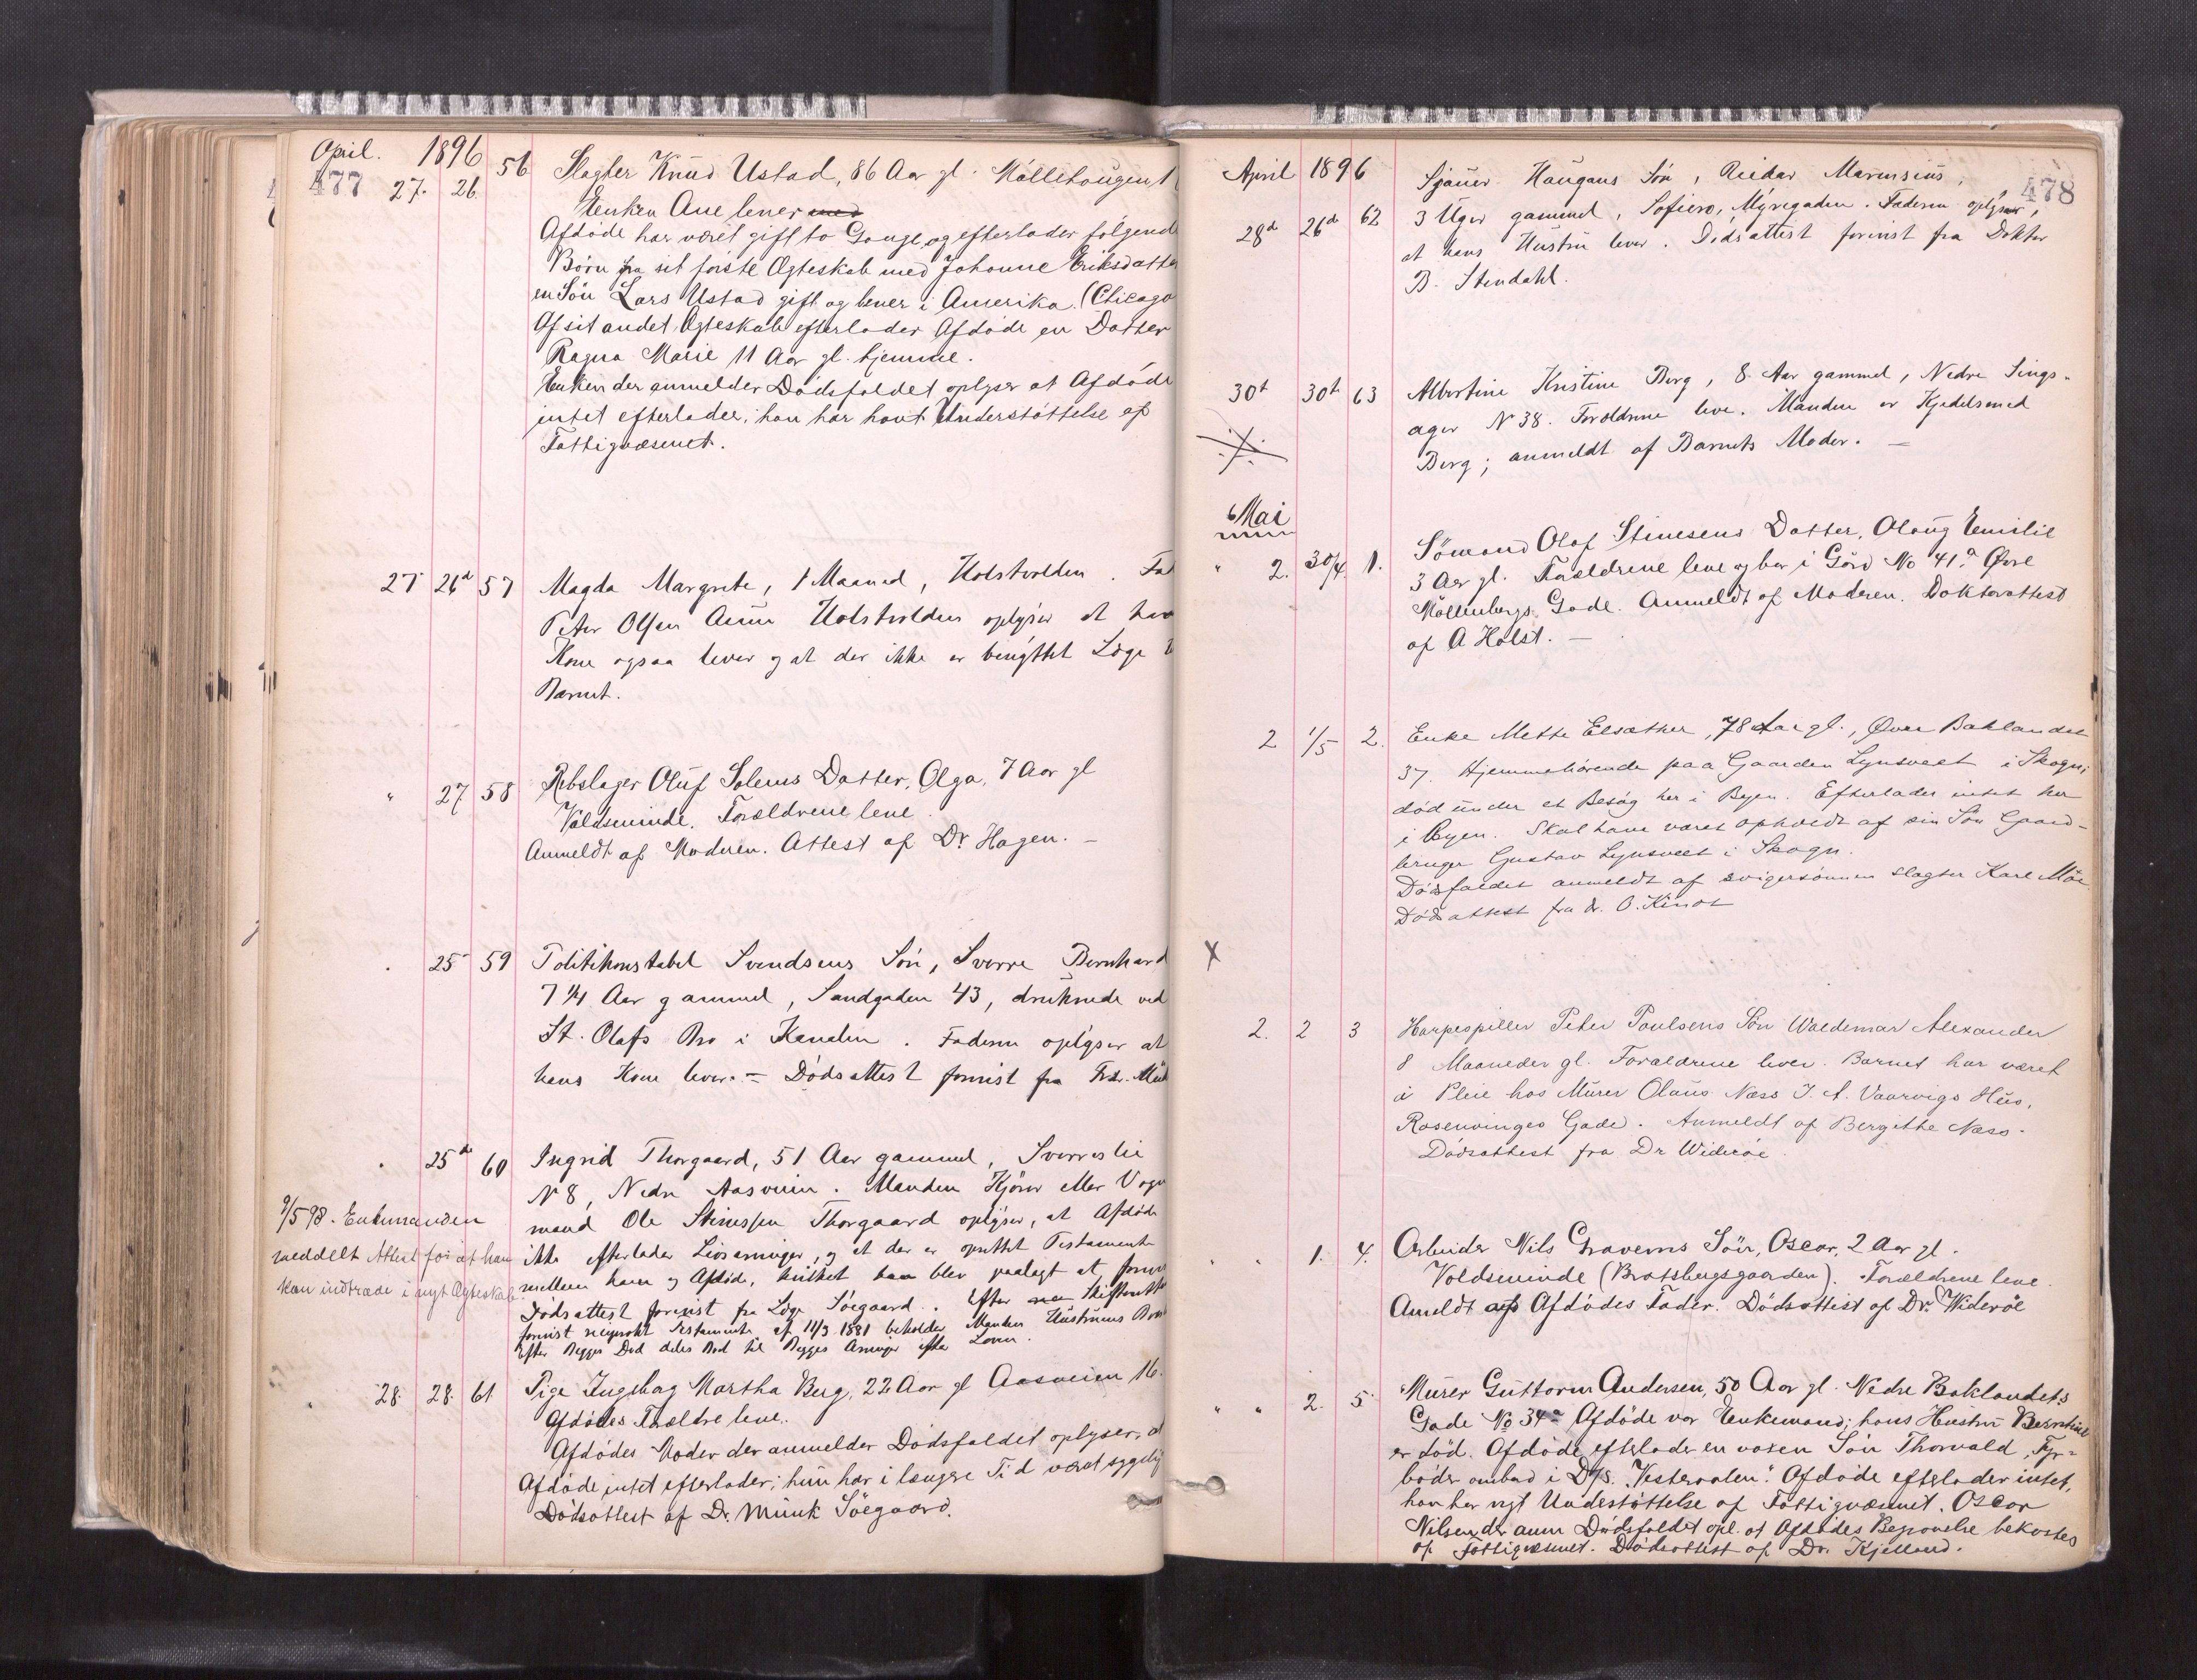 April. 1896
477
27. 26. 56 Slagter Knud Ustad, 86 Aar gl. Möllehougen 1
Enken Ane lever med
Afdöde har været gift to Gange, og efterlader fölgende
Börn fra sit förste Ægteskab med Johanne Eriksdatter
en Sön Lars Ustad gift og lever i Amerika. (Chicago
Af sit andet Ægteskab efterlader Afdöde en Datter
Ragna Marie 11 Aar gl. hjemme.
Enken der anmelder Dödsfaldet oplyser at Afdöde
intet efterlader, han har havt Understöttelse af
Fattigvæsenet.
27 26d 57 Magda Margrete, 1 Maaned, Holstvolden. Fad
Peter Olsen Aune Holstvolden oplyser at han
Kone ogsaa lever og at der ikke er benyttet Læge
Barnet.
" 27 58 Rebslager Oluf Solems Datter, Olga, 7 Aar gl
Voldsminde. Forældrene leve.
Anmeldt af Moderen. Attest af Dr. Hagen. –
. 25 59 Politikonstabel Svendsens Sön, Sverre Bernhard
7 1/4 Aar gammel, Sandgaden 43, druknede ved
St. Olafs Bro i Kanalen. Faderen oplyser at
hans Kone lever. – Dödsattest forevist fra
. 25de 60 Ingrid Thorgaard, 51 Aar gammel, Sverreslie
N 8, Nedre Aasveien. Manden Kjörer eller Vogn
mand Ole Stinessen Thorgaard oplyser, at Afdöde
ikke efterlader Livsarvinger, og at der er oprettet Testamente
mellem ham og Afdöde, hvilket han blev paalagt at forev
Dödsattest forevist fra Læge Söegaard. Efter Skifteretten
forevist reciprokt Testamente af 11/3 1881 beholder Manden Hustruens Bo
Efter Begges Död deles Boet til Begges Arvinger efter Loven.
9/5 98. Enkemanden
meddelt Attest for at han
kan indtræde i nyt Ægteskab
. 28. 28. 61. Pige Ingeborg Martha Berg, 22 Aar gl Aasveien 16.
Afdödes Forældre leve.
Afdödes Moder der anmelder Dödsfaldet oplyser, at
Afdöde intet efterlader; hun har i længere Tid været sygelig
Dödsattest af Dr. Munk Söegaard.
April 1896
478
28d 26de 62 Sjauer Haugans Sön, Reidar Marensius,
3 Uger gammel, Sofiero, Myregaden. Faderen oplyser,
at hans Hustru lever. Dödsattest forevist fra Doktor
B. Stendahl.
30t 30te 63 Albertine Kristine Berg, 8 Aar gammel, Nedre Sings-
ager N 38. Forældrene leve. Manden er Kjedelsmed
Berg; anmeldt af Barnets Moder. –
Mai
" 2. 30/4. 1. Sömand Olaf Stinesens Datter, Olaug Emilie
3 Aar gl. Forældrene leve og bor i Gård No 41a Øvre
Möllenbergs Gade. Anmeldt af Moderen. Doktorattest
af A Holst. –
2 1/5 2. Enke Mette Elsæther, 78 Aar gl., Øvre Baklandet
37. Hjemmehörende paa Gaarden Lynsveet i Skogn;
död under et Besög her i Byen. Efterlader intet her
i Byen. Skal have været opholdt af sin Sön Gaard-
bruger Gustav Lynsveet i Skogn.
Dödsfaldet anmeldt af svigersönnen slagter Karl Möe.
Dödsattest fra dr. O.
X
2. 2 3 Harpespiller Peter Poulsens Sön Waldemar Alexander
8 Maaneder gl. Forældrene lever. Barnet har været
i Pleie hos Murer Olaus Næss I. A. Vaarvigs Hus,
Rosenvinges Gade. Anmeldt af Bergithe Næss.
Dödsattest fra Dr Wideröe.
" " 1. 4. Arbeider Nils Gravems Sön, Oscar, 2 Aar gl.
Voldsminde (Bratsbergsgaarden). Forældrene leve.
Ameldt af Afdödes Fader. Dödsattest af Dr. Wideröe
" " 2. 5 Murer Guttorm Andersen, 50 Aar gl. Nedre Baklandets
Gade No 34a Afdöde var Enkemand; hans Hustru Berntine
er död. Afdöde efterlader en voxen Sön Thorvald, Fyr=
böder ombord i D/S. "Vesteraalen". Afdöde efterlader intet,
han har nydt Understöttelse af Fattigvæsenet. Oscar
Nilsen der anm Dödsfaldet opl. at Afdödes Begravelse bekostes
af Fattigvæsenet. Dödsattest af Dr. Kjelland.